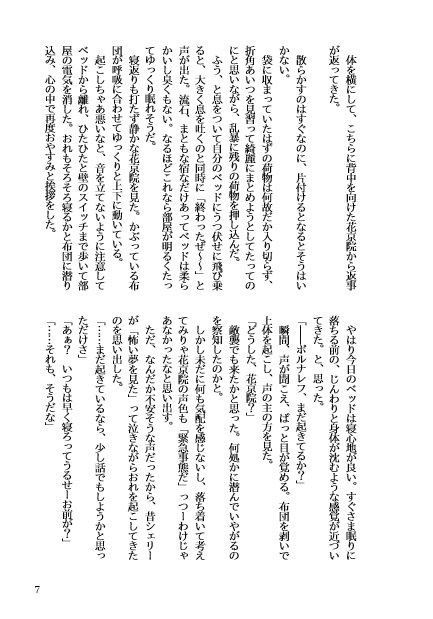 体を横にして、こちらに背中を向けた花京院から返事
が返ってきた。
散らかすのはすぐなのに、片付けるとなるとそうはい
かない。
袋に収まっていたはずの荷物は何故だか入り切らず、
折角あいつを見習って綺麗にまとめようとしてたっての
にと思いながら、乱暴に残りの荷物を押し込んだ。
ふう、と息をついて自分のベッドにうつ伏せに飛び乗
ると、大きく息を吐くのと同時に「終わったぜ〜〜」と
声が出た。流石、まともな宿なだけあってベッドは柔ら
かいし臭くもない。なるほどこれなら部屋が明るくたっ
てゆっくり眠れそうだ。
寝返りも打たず静かな花京院を見た。かぶっている布
団が呼吸に合わせてゆっくりと上下に動いている。
起こしちゃあ悪いなと、音を立てないように注意して
ベッドから離れ、ひたひたと壁のスイッチまで歩いて部
屋の電気を消した。おれもそろそろ寝るかと布団に潜り
込み、心の中で再度おやすみと挨拶をした。
やはり今日のベッドは寝心地が良い。すぐさま眠りに
落ちる前の、じんわりと身体が沈むような感覚が近づい
てきた。と、思った。
「――ポルナレフ、まだ起きてるか？」
瞬間、声が聞こえ、ぱっと目が覚める。布団を剥いで
上体を起こし、声の主の方を見た。
「どうした、花京院？」
敵襲でも来たかと思った。何処かに潜んでいやがるの
を察知したのかと。
しかし未だに何も気配を感じないし、落ち着いて考え
てみりゃ花京院の声色も「緊急事態だ」っつーわけじゃ
あなかったなと思い出す。
ただ、なんだか不安そうな声だったから、昔シェリー
が「怖い夢を見た」って泣きながらおれを起こしてきた
のを思い出した。
「……まだ起きているなら、少し話でもしようかと思っ
ただけさ」
「あぁ？　いつもは早く寝ろってうるせーお前が？」
「……それも、そうだな」
7